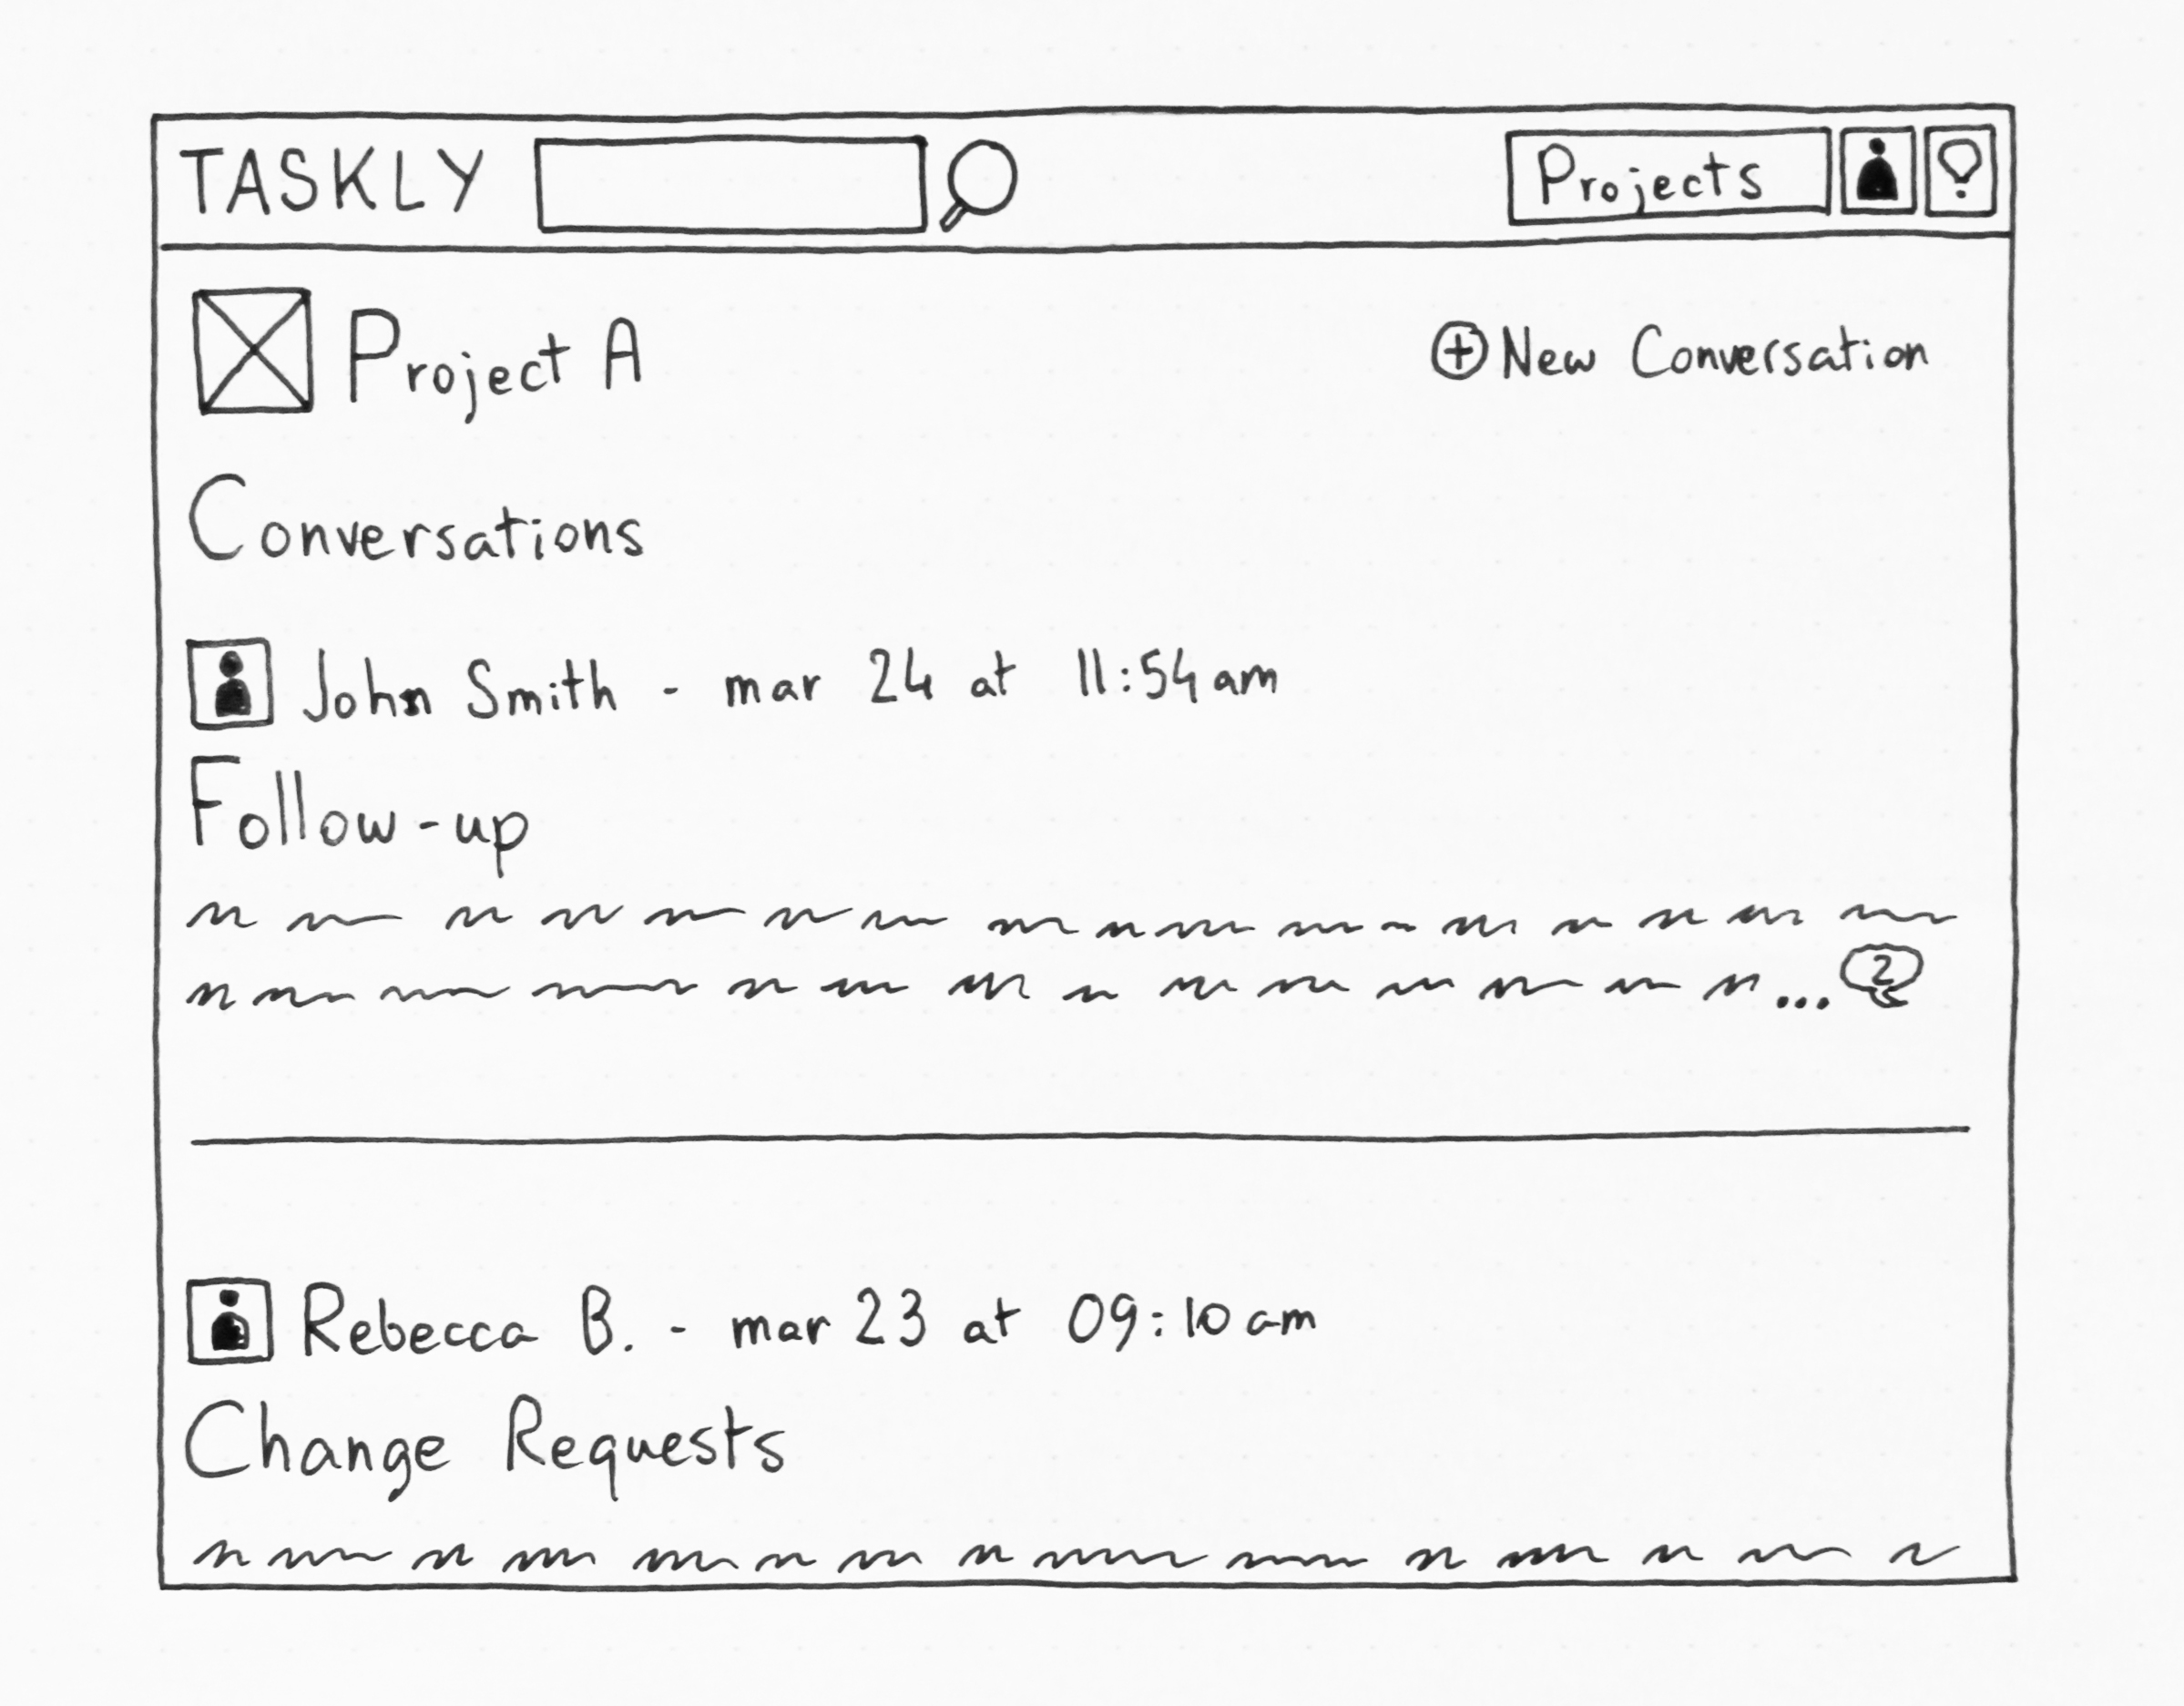 TASKLY Projects
Project A + New Conversation
Conversations
John Smith - mar 24 at 11:54am
Follow-up
... 2
Rebecca B. - mar 23 at 09:10am
Change Requests